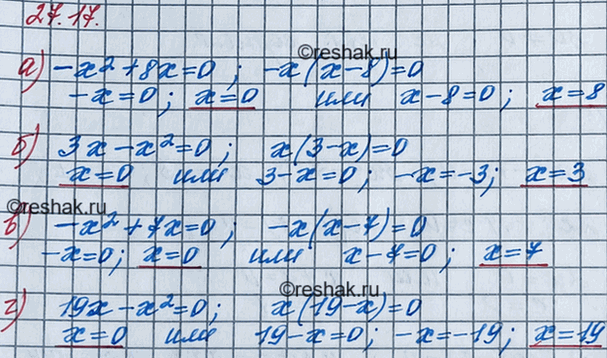 27.17.
©reshak.ru
а) -x² + 8x = 0 ; -x(x-8) = 0
-x = 0 ; x = 0 или x - 8 = 0 ; x = 8
б) 3x - x² = 0 ; x(3-x) = 0
x = 0 или 3 - x = 0 ; -x = -3 ; x = 3
©reshak.ru
в) -x² + 7x = 0 ; -x(x-7) = 0
-x = 0 ; x = 0 или x - 7 = 0 ; x = 7
©reshak.ru
г) 19x - x² = 0 ; x(19-x) = 0
x = 0 или 19 - x = 0 ; -x = -19 ; x = 19